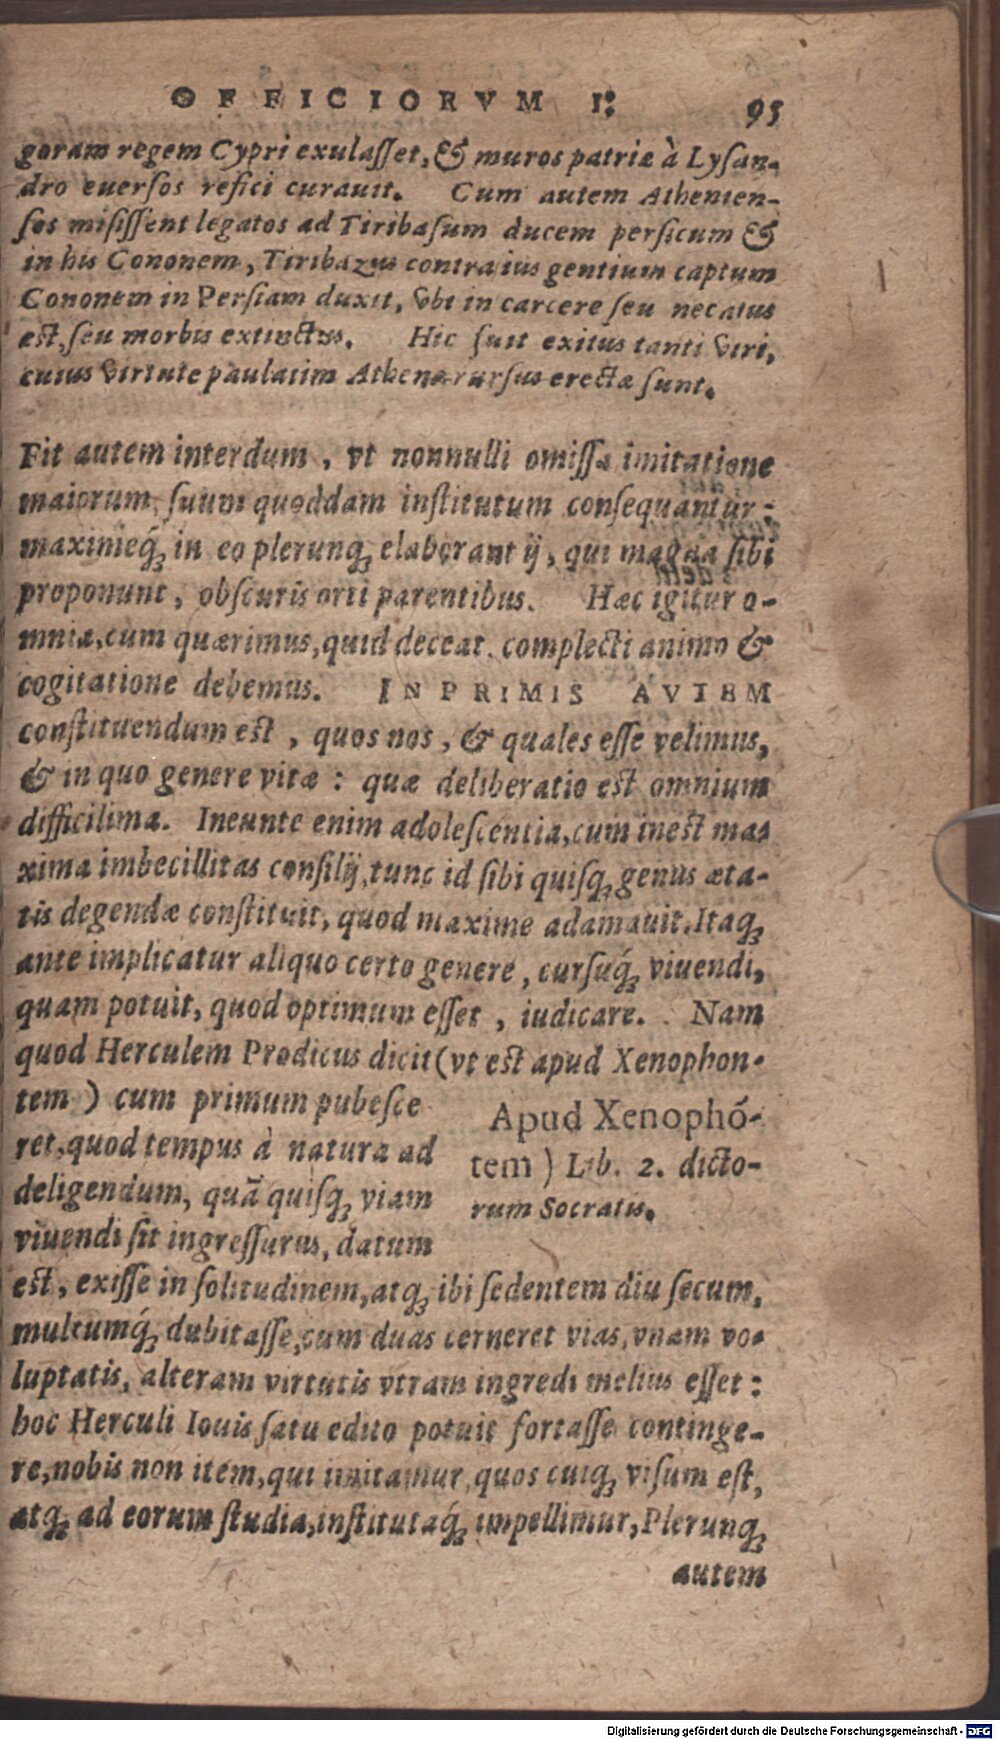 OFFICIORVM I. 95
goram regem Cypri exulaſſet, & muros patriæ à Lyſan-
dro euerſos refici curauit. Cum autem Athenien-
ſes miſiſſent legatos ad Tiribaſum ducem perſicum &
in his Cononem, Tiribazus contra ius gentium captum
Cononem in Perſiam duxit, vbi in carcere ſeu necatus
est, ſeu morbis extinctus. Hic fuit exitus tanti viri,
cuius virtute paulatim Athenæ rurſus erectæ ſunt.
Fit autem interdum, vt nonnulli omiſſa imitatione
maiorum, ſuum quoddam inſtitutum conſequantur:
maximeq́; in eo plerunq; elaborant ij, qui magna ſibi
proponunt, obſcuris orti parentibus. Hæc igitur o-
mnia, cum quærimus, quid deceat, complecti animo &
cogitatione debemus. INPRIMIS AVTEM
conſtituendum eſt, quos nos, & quales eſſe velimus,
& in quo genere vitæ: quæ deliberatio eſt omnium
difficilima. Ineunte enim adoleſcentia, cum ineſt ma-
xima imbecillitas conſilij, tunc id ſibi quiſq; genus æta-
tis degendæ conſtituit, quod maxime adamauit. Itaq;
ante implicatur aliquo certo genere, curſuq́; viuendi,
quam potuit, quod optimum eſſet, iudicare. Nam
quod Herculem Prodicus dicit (vt eſt apud Xenophon-
tem) cum primum pubeſce
ret, quod tempus à natura ad
deligendum, quã quiſq; viam
viuendi ſit ingreſſurus, datum
Apud Xenophõ-
tem) Lib. 2. dicto-
rum Socratis.
eſt, exiſſe in ſolitudinem, atq; ibi ſedentem diu ſecum,
multumq́; dubitaſſe, cum duas cerneret vias, vnam vo-
luptatis, alteram virtutis vtram ingredi melius eſſet:
hoc Herculi Iouis ſatu edito potuit fortaſſe continge-
re, nobis non item, qui imitamur, quos cuiq; viſum eſt,
atq; ad eorum ſtudia, inſtitutaq́; impellimur, Plerunq;
autem
Digitalisierung gefördert durch die Deutsche Forschungsgemeinschaft - DFG